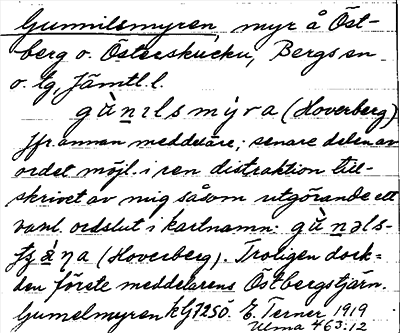 Gunnilsmyren, myr å Öst-
berg o. Österskucku, Bergs sn
o. tg, Jämtl. l.
gùn̲ɪlsmýra (Hoverberg)
Jfr annan meddelare; senare delen av
ordet möjl. i ren distraktion till-
skrivet av mig såsom utgörande ett
vanl. ordslut i kartnamn: gùn̲əls-
(Hoverberg). Troligen dock
den förste meddelarens Östbergstjärn.
Gumelmyren kG1250. E. Terner 1919
Ulma 463:12